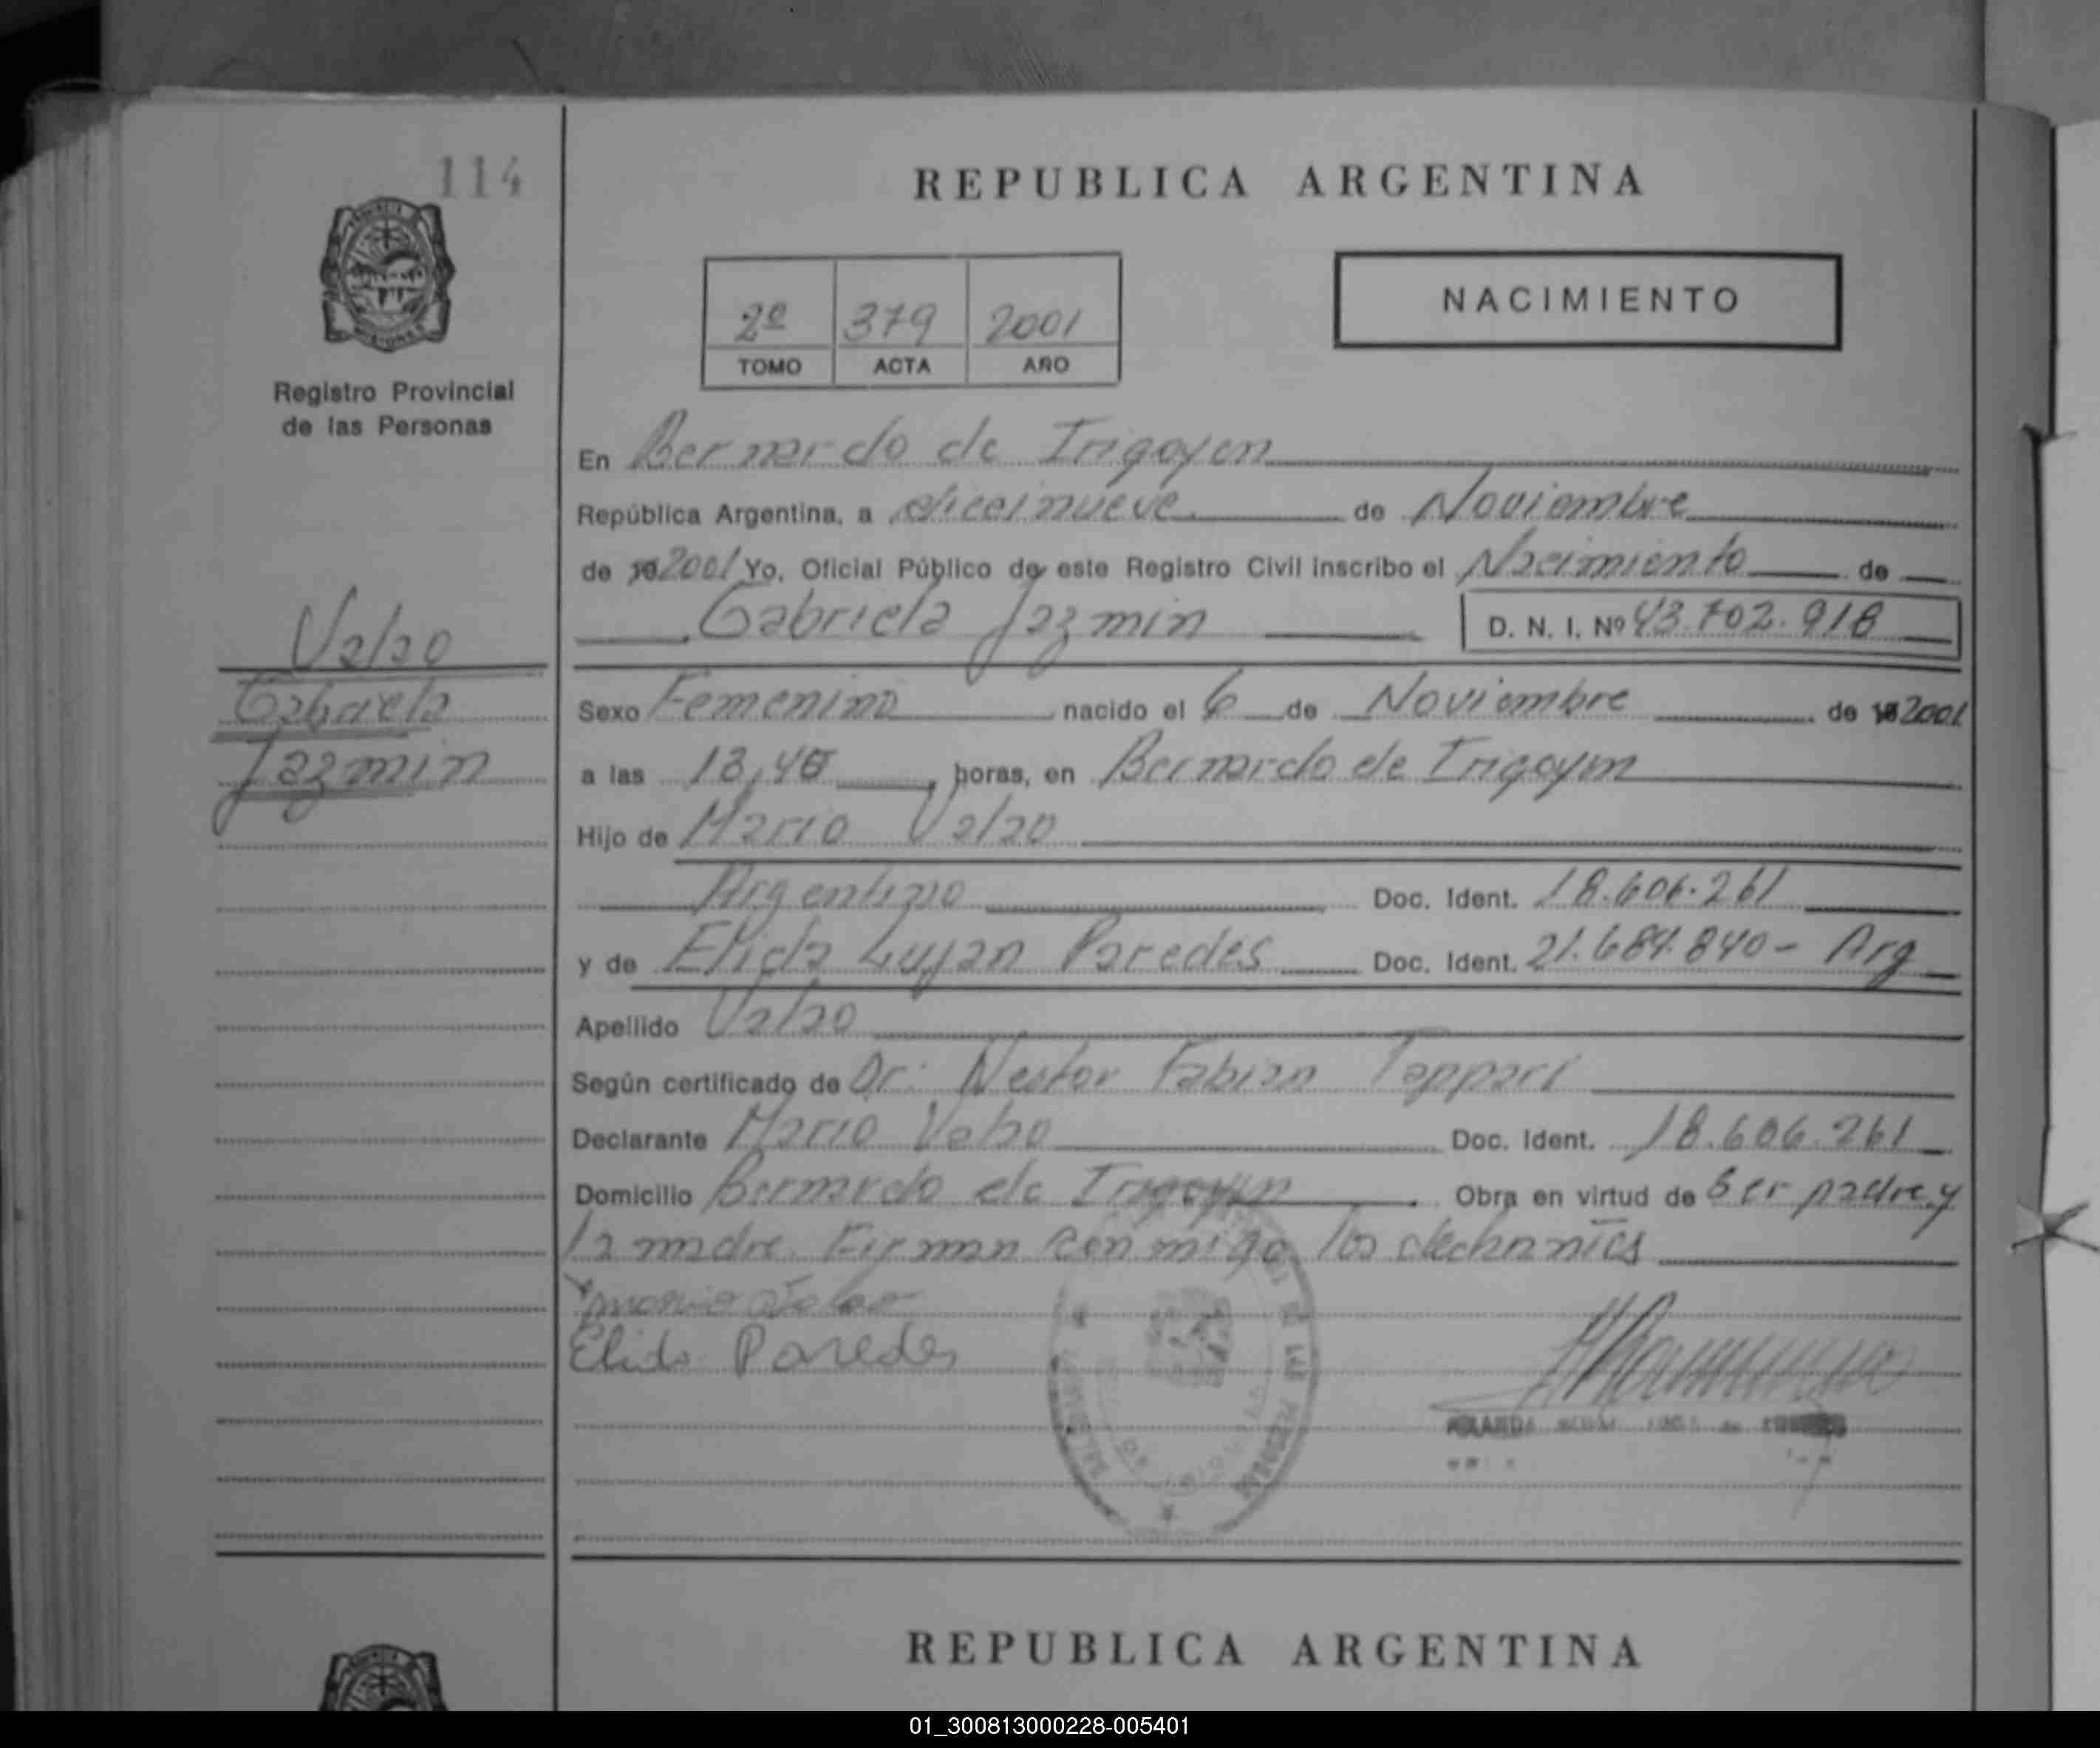 114
REPUBLICA ARGENTINA
2º 379 2001
TOMO ACTA AÑO
NACIMIENTO
Registro Provincial
de las Personas
En Bernardo de Irigoyen
República Argentina, a diecinueve de Noviembre
de 2001 Yo, Oficial Público de este Registro Civil inscribo el Nacimiento de
Gabriela Jazmin D. N. I. Nº 43.702.918
Valao
Gabriela
Jazmin
Sexo Femenino nacido el 6 de Noviembre de 2001
a las 13,45 horas, en Bernardo de Irigoyen
Hijo de Mario Valao
Argentino Doc. Ident. 18.606.261
y de Elida Lujan Paredes Doc. Ident. 21.684.840 - Arg
Apellido Valao
Según certificado de Dr: Nestor Fabian Tappari
Declarante Mario Valao Doc. Ident. 18.606.261
Domicilio Bernardo de Irigoyen Obra en virtud de ser padre y
la madre. Firman con migo los
Elida Paredes
REPUBLICA ARGENTINA
01_300813000228-005401